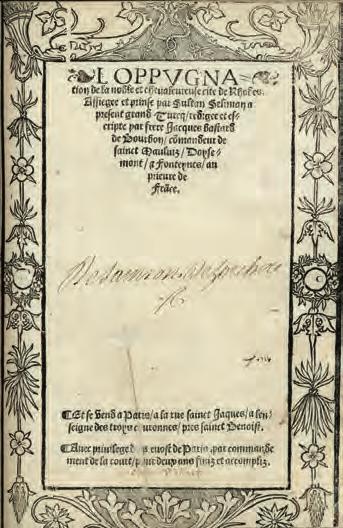 LOPPVGNA-
tion de la noble et cheualeureuse cite de Rhodes.
Assiegee et prinse par Sultan Seliman a
present grand Turcq / redigee et es-
cripte par frere Jacques Bastard
de Bourbon / cōmandeur de
sainct Mauluiz / Doyse-
mont / a Fonteynes / au
prieure de
Frāce.
¶ Et se vend a Paris / a la rue sainct Jaques / a len-
seigne des troys couronnes / pres sainct Benoist.
¶ Auec priuilege uost de Paris par commande
ment de la court / pour deux ans finiz et accompliz.